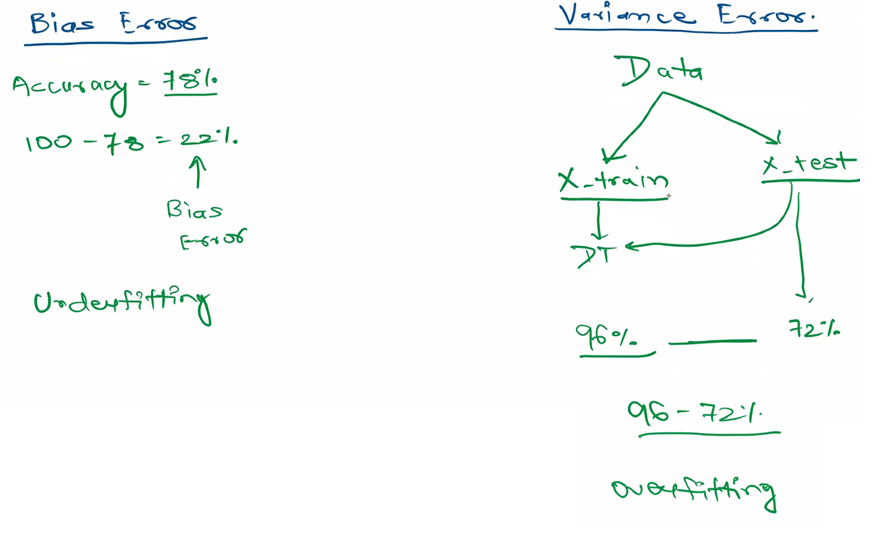 Bias Error
Accuracy = 78%
100 - 78 = 22%
Bias
Error
Underfitting
Variance Error.
Data
X_train
X_test
DT
96%
72%
96 - 72%
overfitting